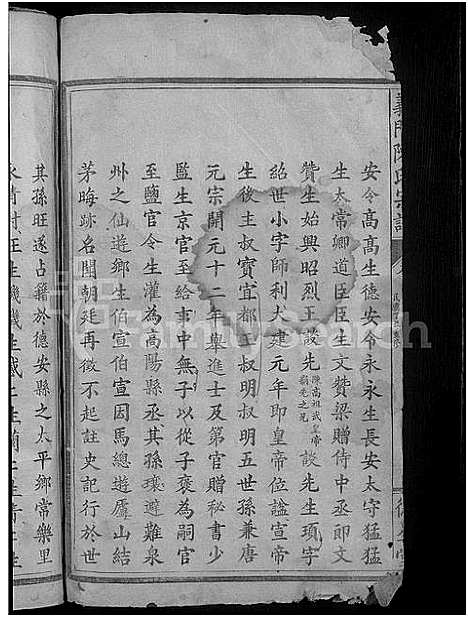 義門陳氏宗譜
安令高高生德安令永永生長安太守猛猛
生太常卿道臣臣生文贊梁贈侍中丞即文
贊生始興昭烈王談先陳高祖武皇帝霸先之兄談先生頊字
紹世小字師利大建元年即皇帝位謚宣帝
生後主叔寶宜都王叔明叔明五世孫兼唐
元宗開元十二年舉進士及第官贈秘書少
監生京官至給事中無子以從子褒為嗣官
至鹽官令生灌為高陽縣丞其孫瓌避難泉
州之仙遊鄉生伯宣伯宣因馬總遊廬山結
茅晦跡名聞朝廷再徵不起註史記行於世
其孫旺遂占籍於德安縣之太平鄉常樂里
FamilySearch